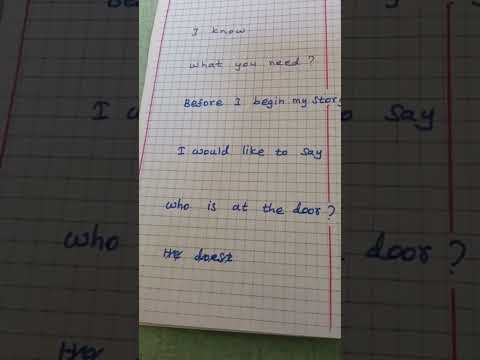 I know
what you need ?
Before I begin my story
I would like to say
who is at the door ?